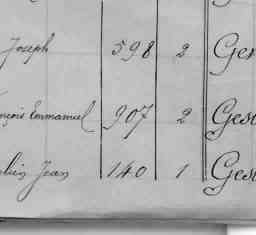 Joseph 598 2 Ger
nçois Emmanuel 907 2 Gest
Jean 140 1 Gest